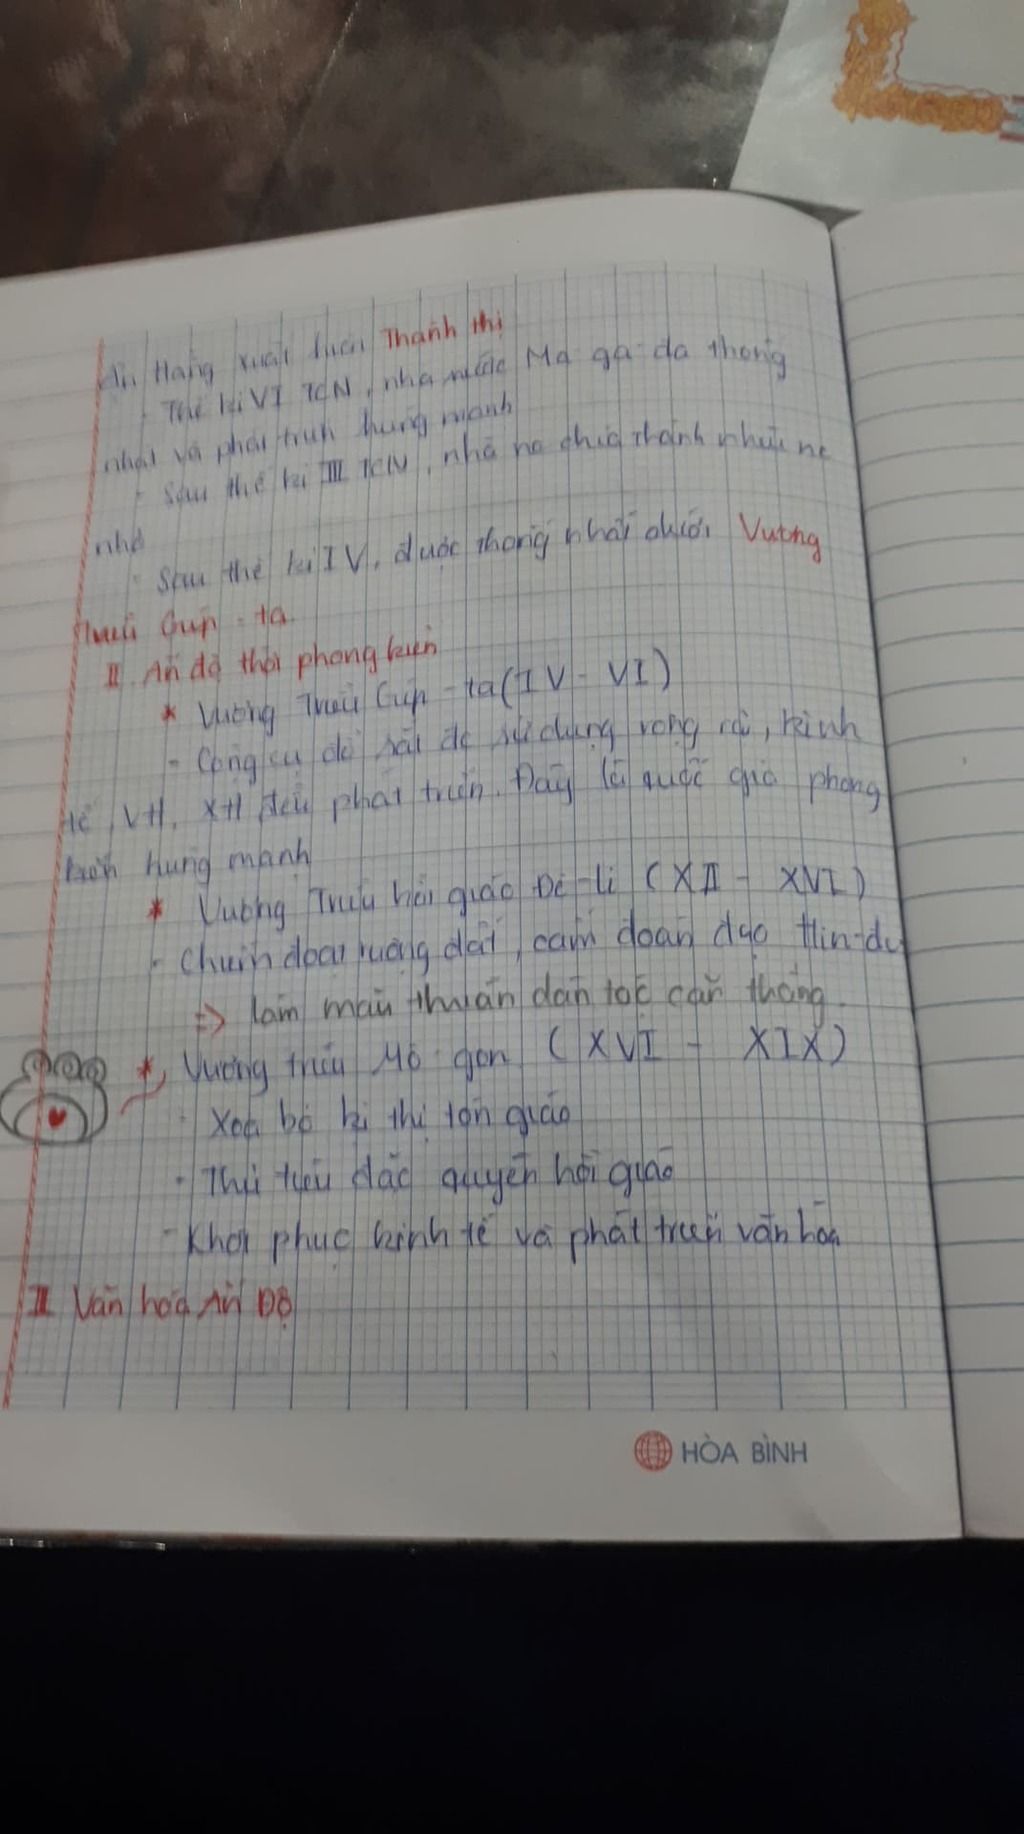 Hằng xuất hiện Thành thị
- Thế kỉ VI TCN, nhà nước Ma ga da thống
nhất và phát triển hùng mạnh
- Sau thế kỉ III TCN, nhà nc chia thành nhiều nc
nhỏ
- Sau thế kỉ IV, được thống nhất dưới Vương
triều Gup - ta.
II. Ấn độ thời phong kiến
* Vương Triều Gup - ta (IV - VI)
- Công cụ đồ sắt đc sử dụng rộng rãi, kinh
tế, VH, XH đều phát triển. Đây là quốc gia phong
kiến hùng mạnh
* Vương Triều hồi giáo Đê-li (XII - XVI)
- Chiếm đoạt ruộng đất, cấm đoán đạo Hin-du
=> làm mâu thuẫn dân tộc căn thẳng.
* Vương triều Mô gôn (XVI - XIX)
- Xoá bỏ kì thị tôn giáo
- Thủ tiêu đặc quyền hồi giáo
- Khôi phục kinh tế và phát triển văn hóa
II Văn hóa Ấn Độ
HÒA BÌNH